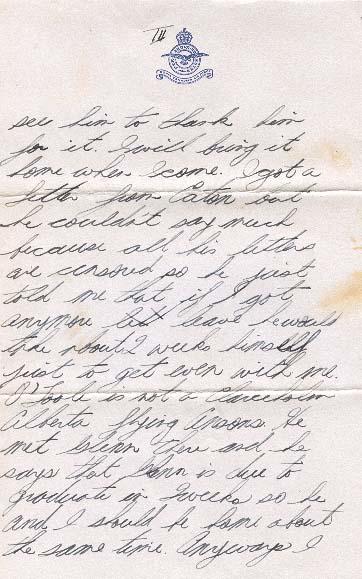 III
see him to thank him
for it. I will bring it
home when I come. I got a
letter from Eaton but
he couldn't say much
because all his letters
are censored so he just
told me that if I got
anymore leave he would
take about 2 weeks himself
just to get even with me.
O'Toole is not a Claresholm
Alberta flying Ansons. He
met Glenn there and he
says that Glenn is due to
graduate in 2 weeks so he
and I should be home about
the same time. Anyways I